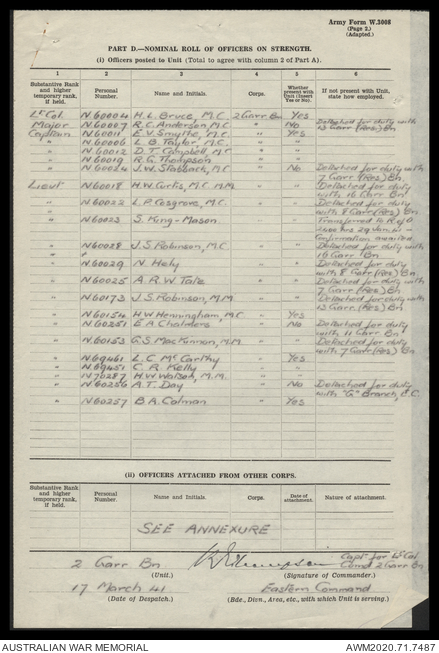 Army Form W.3008
(Page 2.)
(Adapted.)
PART D.—NOMINAL ROLL OF OFFICERS ON STRENGTH.
(i) Officers posted to Unit (Total to agree with column 2 of Part A).
1 2 3 4 5 6
Substantive Rank and higher temporary rank, if held. Personal Number. Name and Initials. Corps. Whether present with Unit (Insert Yes or No). If not present with Unit, state how employed.
Lt Col N60004 H.L. Bruce, M.C. 2 Garr Bn Yes
Major N60007 R.C. Anderson M.C. " No Detached for duty with 13 Garr (Res) Bn
Captain N61011 E.V. Smythe, M.C. " Yes
" N60006 L.B. Taylor, M.C. " "
" N60012 D.T. Campbell M.C. " "
" N60019 R.G. Thompson " "
" N60024 J.W. Stabback, M.C. " No Detached for duty with 7 Garr (Res) Bn
Lieut N60018 H.W. Curtis, M.C. M.M. " " Detached for duty with 16 Garr Bn
" N60022 L.P. Cosgrove, M.C. " " Detached for duty with 8 Garr (Res) Bn
" N60023 S. King-Mason. " " Transferred to R of O
" N60028 J.S. Robinson, M.C. " " Detached for duty 16 Garr Bn
" N60029 N. Hely " " Detached for duty with 8 Garr (Res) Bn
" N60025 A.R.W. Tate " " Detached for duty with 7 Garr (Res) Bn
" N60173 J.S. Robinson, M.M. " " Detached for duty with 13 Garr (Res) Bn
" N60154 H.W. Henningham, M.C. " Yes
" N60251 E.A. Chalmers " No Detached for duty with 11 Garr Bn
" N60153 G.S. MacKinnon, M.M. " " Detached for duty with 7 Garr (Res) Bn
" N69461 L.C. McCarthy " Yes
" N69451 C.R. Kelly " "
" N70287 H.W. Watson, M.M. " "
" N60256 A.T. Day " No Detached for duty with "G" Branch, E.C.
" N60257 B.A. Colman " Yes
(ii) OFFICERS ATTACHED FROM OTHER CORPS.
Substantive Rank and higher temporary rank, if held. Personal Number. Name and Initials. Corps. Date of attachment. Nature of attachment.
SEE ANNEXURE
2 Garr Bn Capt for Lt Col
Comd 2 Garr Bn
(Unit.) (Signature of Commander.)
17 March 41 Eastern Command
(Date of Despatch.) (Bde., Divn., Area, etc., with which Unit is serving.)
AUSTRALIAN WAR MEMORIAL AWM2020.71.7487